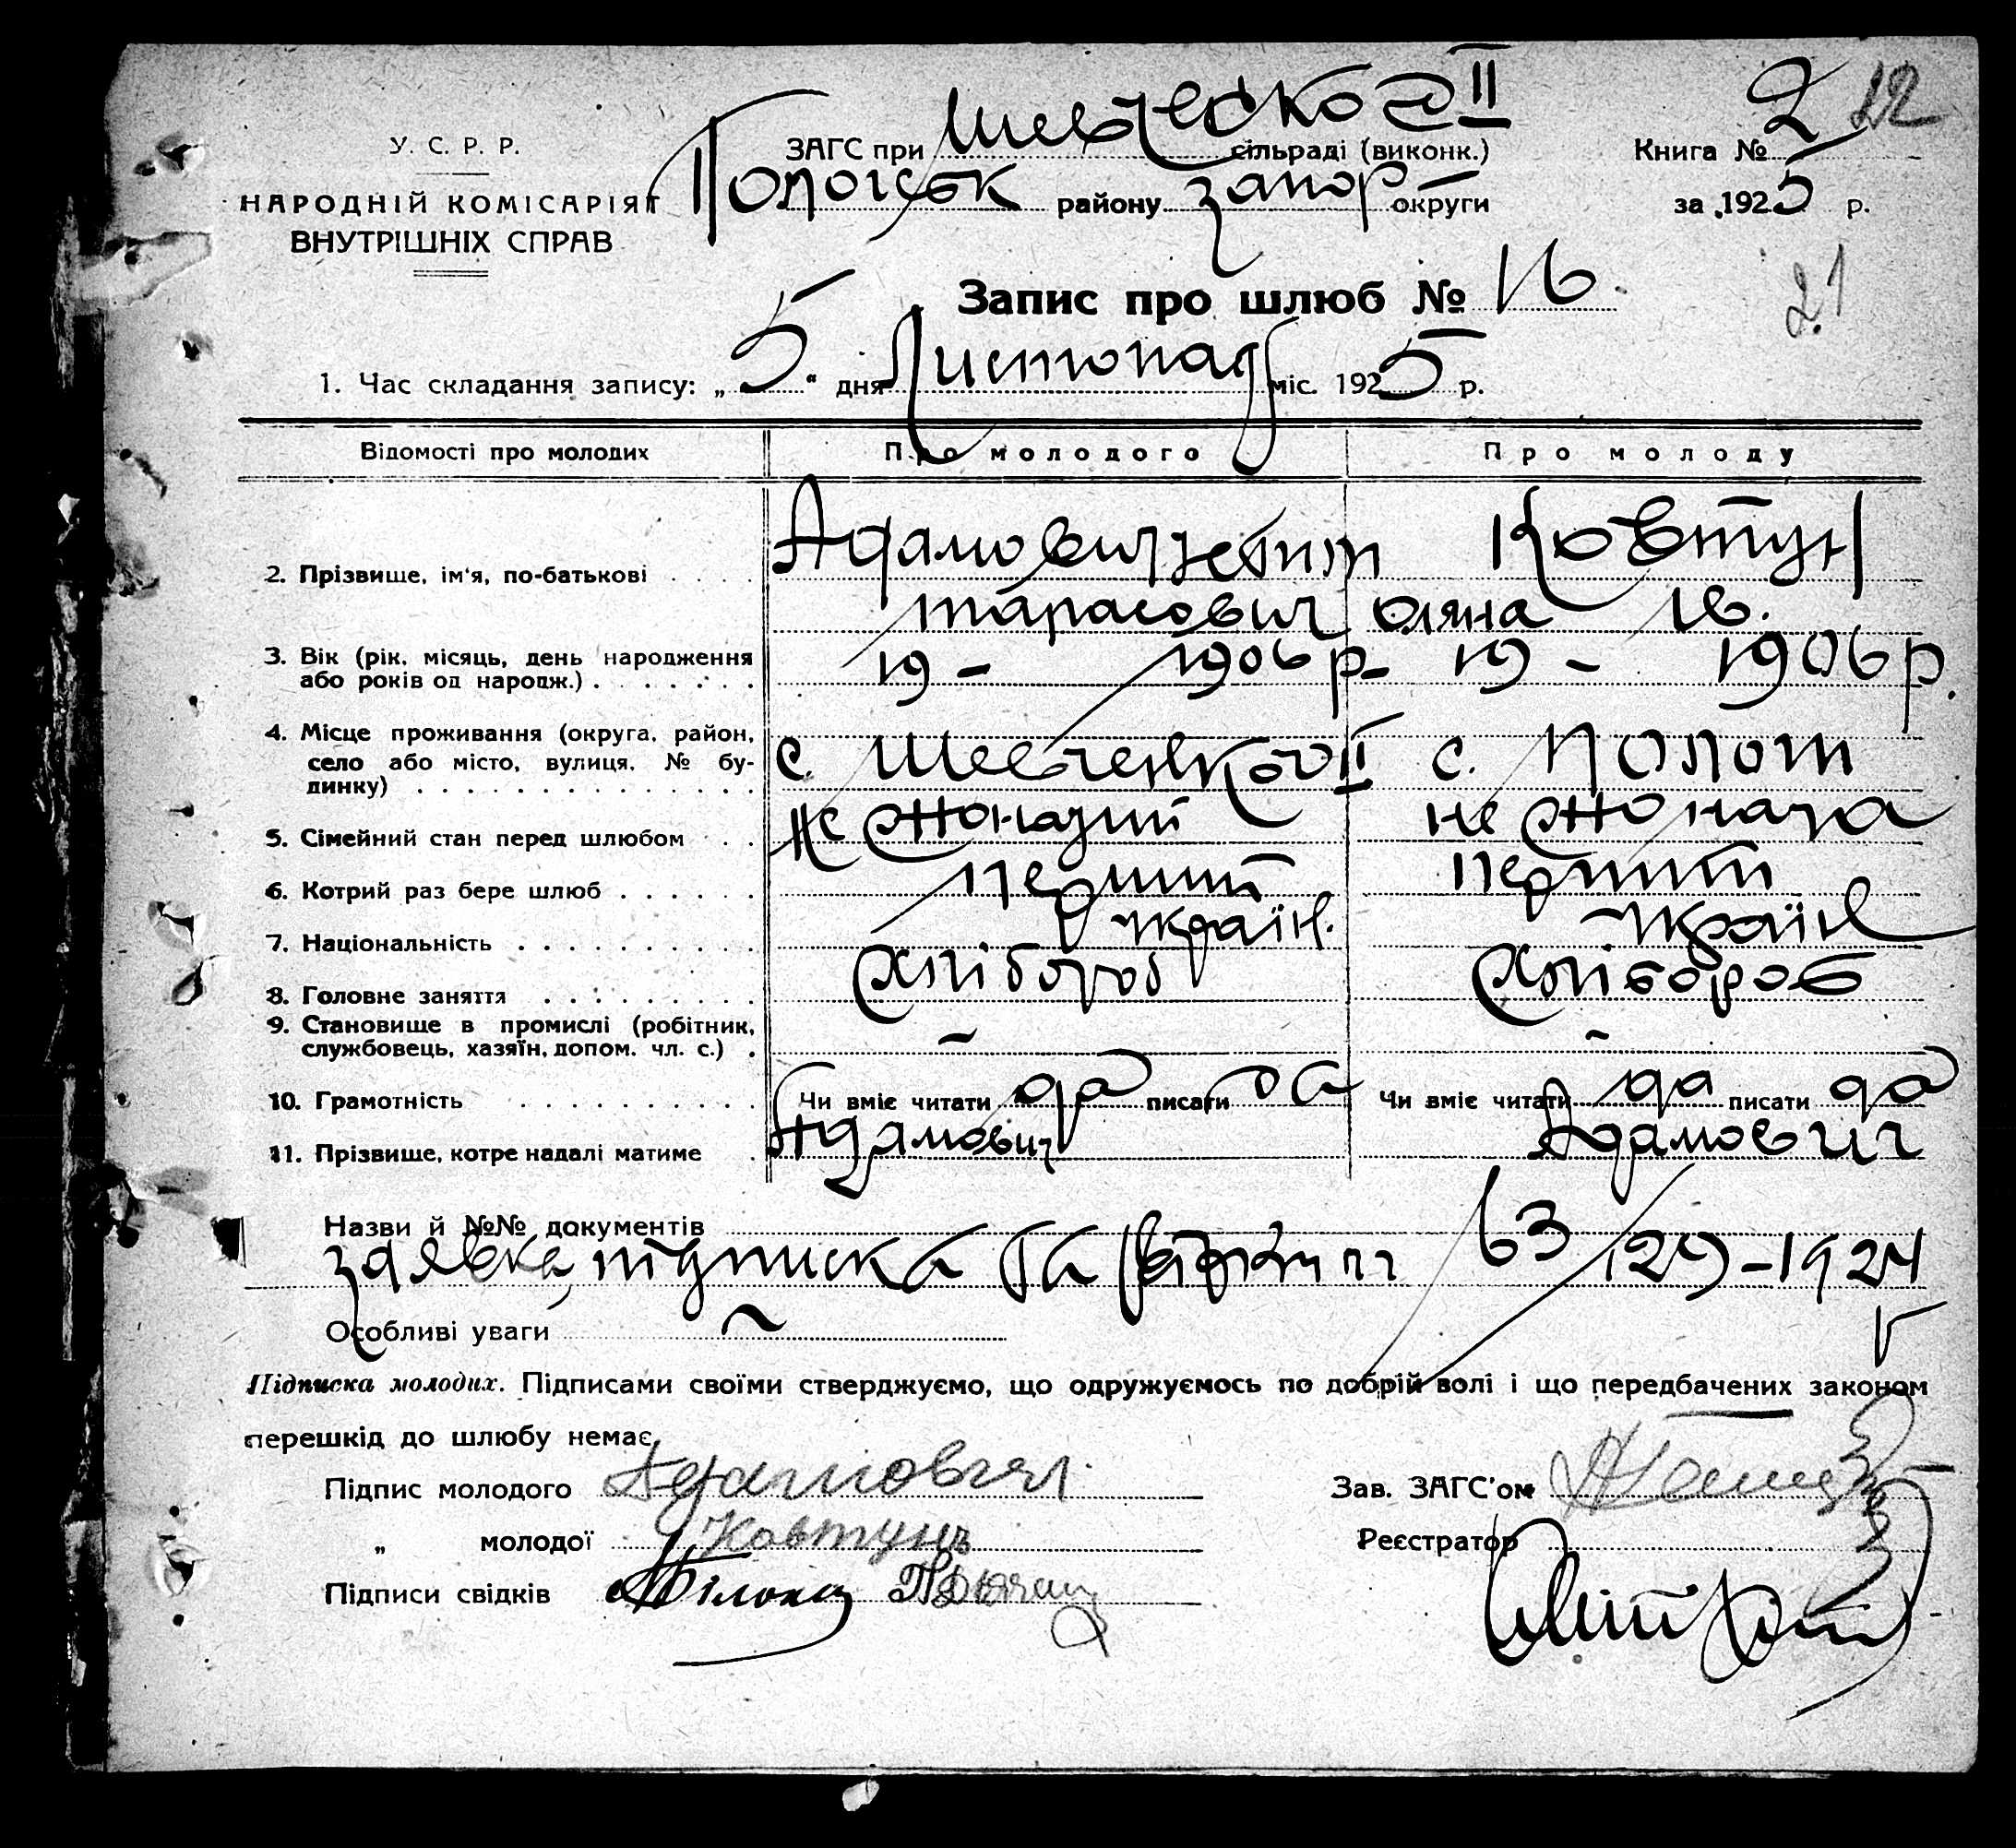 У. С. Р. Р.
НАРОДНІЙ КОМІСАРІЯТ
ВНУТРІШНІХ СПРАВ
ЗАГС при Шевченко ІІ сільраді (виконк.)
Пологськ району Запор округи
Книга № 2 22
за 1925 р.
21
Запис про шлюб № 16
1. Час складання запису: „5" дня Листопад міс. 1925 р.
Відомості про молодих Про молодого Про молоду
2. Прізвище, ім'я, по-батькові Адамович Ковтун
Тарасович Оляна Ів.
3. Вік (рік, місяць, день народження або років од народж.) 19 - 1906 р- 19 - 1906 р.
4. Місце проживання (округа, район, село або місто, вулиця, № будинку) с. Шевченково ІІ с. Пологи
5. Сімейний стан перед шлюбом не жонатий не жоната
6. Котрий раз бере шлюб перший перший
7. Національність Україн. Україн
8. Головне заняття хлібороб хлібороб
9. Становище в промислі (робітник, службовець, хазяїн, допом. чл. с.) - -
10. Грамотність Чи вміє читати да писати да Чи вміє читати да писати да
11. Прізвище, котре надалі матиме Адамович Адамович
Назви й №№ документів
заявка, підписка та 63/129-1924
Особливі уваги ~
Підписка молодих. Підписами своїми стверджуємо, що одружуємось по добрій волі і що передбачених законом
перешкід до шлюбу немає.
Підпис молодого Адамович
„ молодої Ковтунъ
Підписи свідків
Зав. ЗАГС'ом
Реєстратор